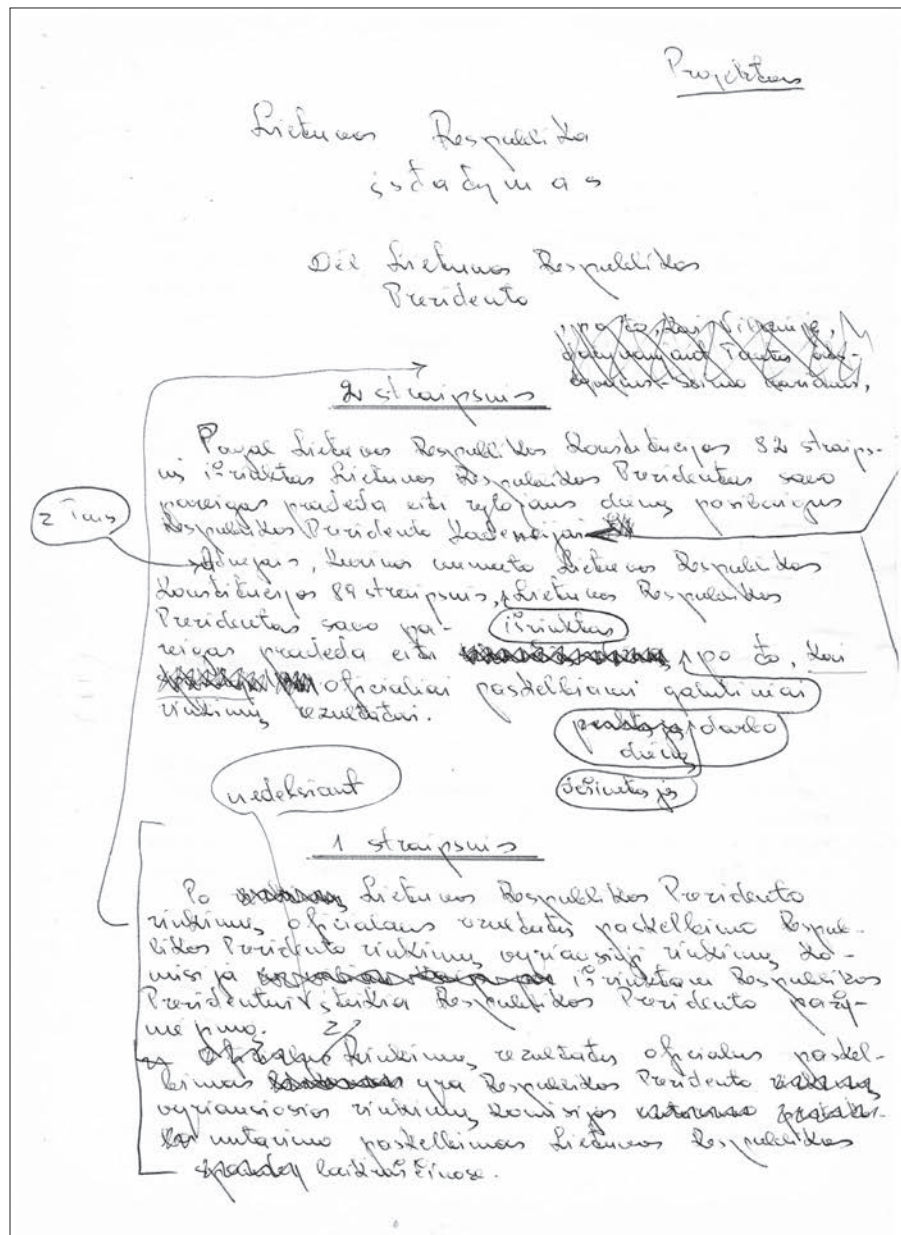 Projektas
Lietuvos Respublika
įstatymas
Dėl Lietuvos Respublikos
Prezidento
, po to, kai Vilniuje,
dalyvaujant Tautos ats-
tovams - Seimo nariams,
2 straipsnis
Pagal Lietuvos Respublikos Konstitucijos 82 straips-
nį išrinktas Lietuvos Respublikos Prezidentas savo
pareigas pradeda eiti rytojaus dieną pasibaigus
Respublikos Prezidento kadencijai
2 Tais
Atvejais, kuriuos numato Lietuvos Respublikos
Konstitucijos 89 straipsnis, Lietuvos Respublikos
Prezidentas savo pa-
išrinktas
reigas pradeda eiti po to, kai
oficialiai paskelbiami galutiniai
rinkimų rezultatai.
darbo
dieną
nedelsiant
1 straipsnis
Po Lietuvos Respublikos Prezidento
rinkimų oficialaus rezultatų paskelbimo Respub-
likos Prezidento rinkimų vyriausioji rinkimų ko-
misija išrinktam Respublikos
Prezidentui įteikia Respublikos Prezidento pažy-
mėjimą.
2
Rinkimų rezultatų oficialus paskel-
bimas yra Respublikos Prezidento
vyriausiosios rinkimų komisijos
nutarimo paskelbimas Lietuvos Respublikos
laikraščiuose.